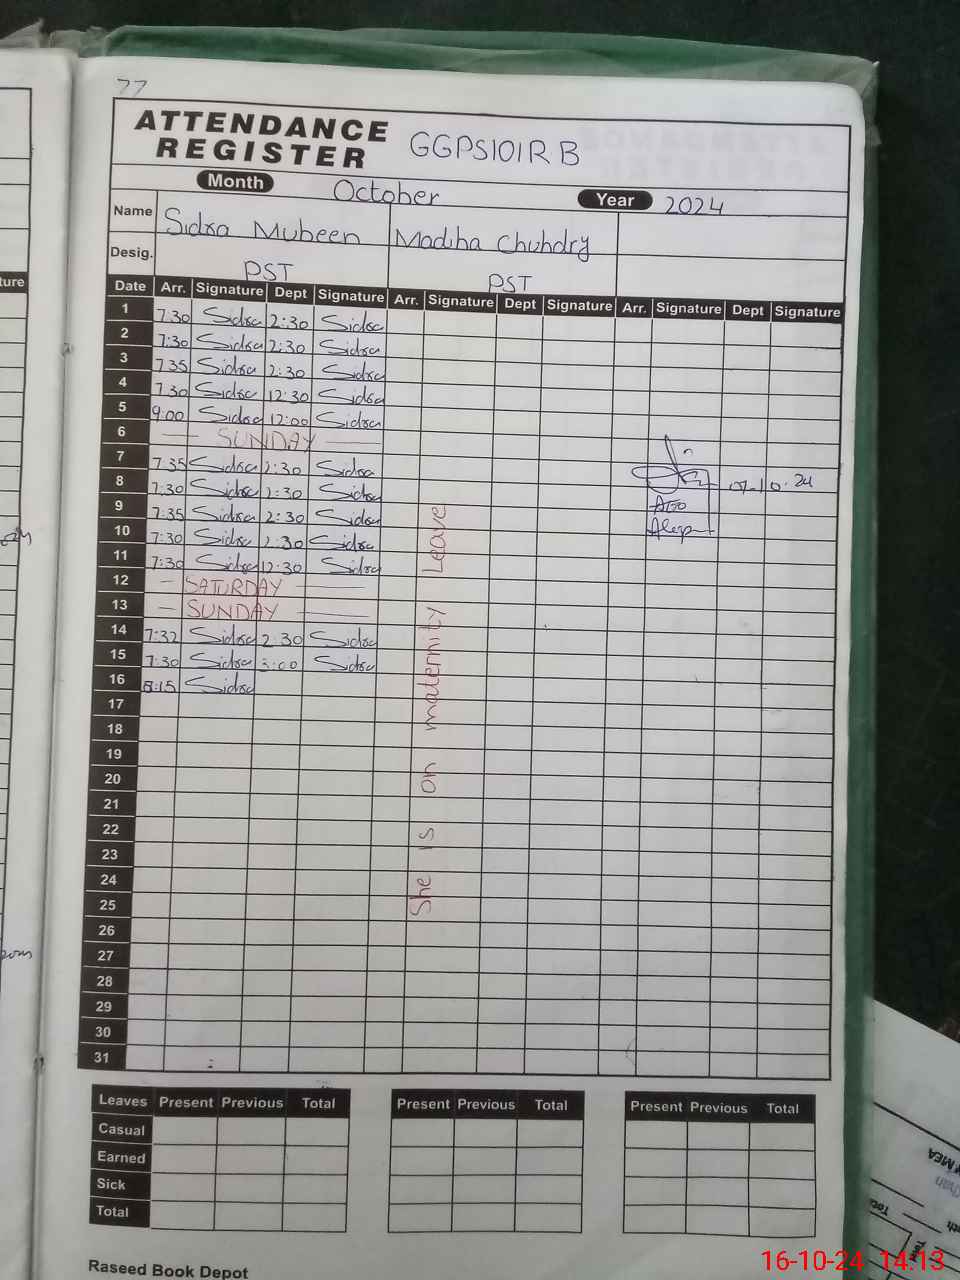 77
ATTENDANCE REGISTER GGPS101RB
Month October Year 2024
Name Sidra Mubeen Madiha Chuhdry
Desig. PST PST
Date Arr. Signature Dept Signature Arr. Signature Dept Signature Arr. Signature Dept Signature
1 7.30 Sidra 2:30 Sidra
2 7:30 Sidra 2:30 Sidra
3 7:35 Sidra 2:30 Sidra
4 7.30 Sidra 12:30 Sidra
5 9:00 Sidra 12:00 Sidra
6 SUNDAY
7 7:35 Sidra 2:30 Sidra
8 7:30 Sidra 2:30 Sidra 07-10-24
9 7:35 Sidra 2:30 Sidra AEO
10 7:30 Sidra 2:30 Sidra
11 7:30 Sidra 12:30 Sidra
12 SATURDAY
13 SUNDAY
14 7:32 Sidra 2:30 Sidra
15 7:30 Sidra 3:00 Sidra
16 8:15 Sidra
17
18
19
20
21
22
23
24
25
26
27
28
29
30
31
She is on maternity Leave
Leaves Present Previous Total Present Previous Total Present Previous Total
Casual
Earned
Sick
Total
Raseed Book Depot
16-10-24 14:13